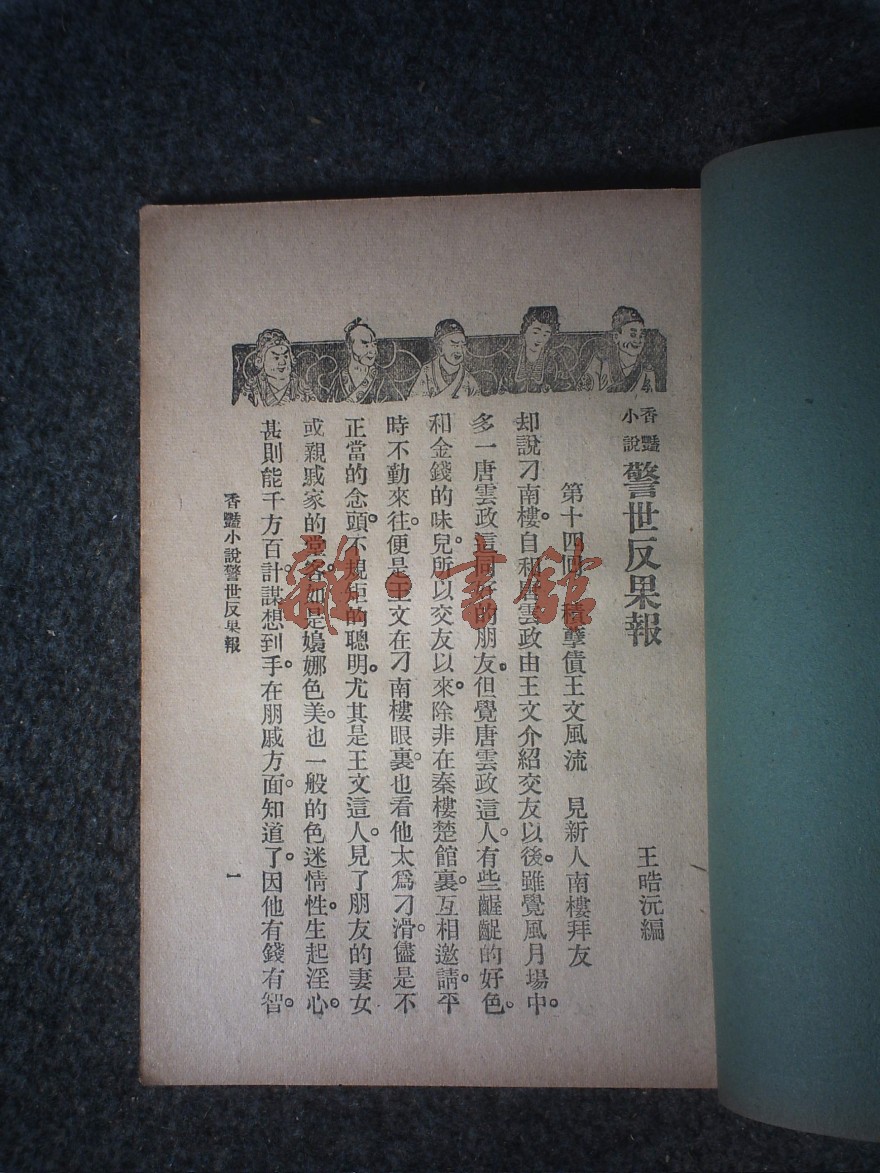 香艷小說 警世反果報
王晧沅編
第十四回 積孽債王文風流 見新人南樓拜友
却說刁南樓。自和唐雲政由王文介紹交友以後。雖覺風月場中。
多一唐雲政這同好的朋友。但覺唐雲政這人。有些齷齪的好色。
和金錢的味兒。所以交友以來。除非在秦樓楚館裏。互相邀請。平
時不勤來往。便是王文在刁南樓眼裏。也看他太爲刁滑。儘是不
正當的念頭。不規矩的聰明。尤其是王文這人。見了朋友的妻女
或親戚家的堂客。如是嬝娜色美。也一般的色迷情性。生起淫心。
甚則能千方百計。謀想到手。在朋戚方面。知道了。因他有錢有智。
香艷小說警世反果報 一
雜·書館